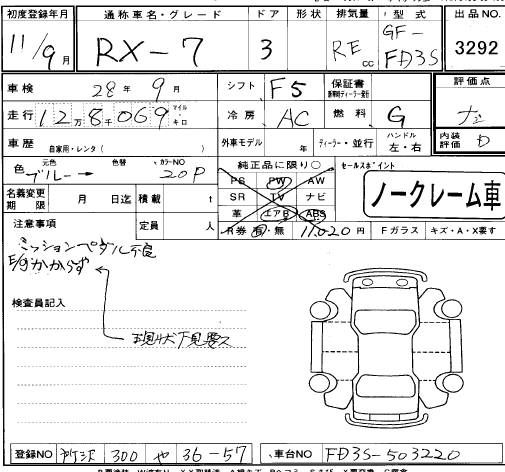 初度登録年月 通称車名・グレード ドア 形状 排気量 型式 出品NO.
11/9月 RX-7 3 RE cc GF-FD3S 3292
車検 28年 9月 シフト F5 保証書 評価点
走行 12万8千069 マイル・キロ 冷房 AC 燃料 G
車歴 自家用・レンタ( ) 外車モデル 年 ディーラー・並行 ハンドル 左・右 内装評価 D
色 元色 ブルー→ 色替 カラーNO 20P 純正品に限り○ セールスポイント
PS PW AW
名義変更期限 月 日迄 積載 t SR TV ナビ ノークレーム車
革 エアB ABS
注意事項 定員 人 R券 有・無 11020円 Fガラス キズ・A・X要す
ミッションペダル不良
E/gかからず
検査員記入
現状下見要ス
登録NO 300 や 36-57 車台NO FD3S-503220